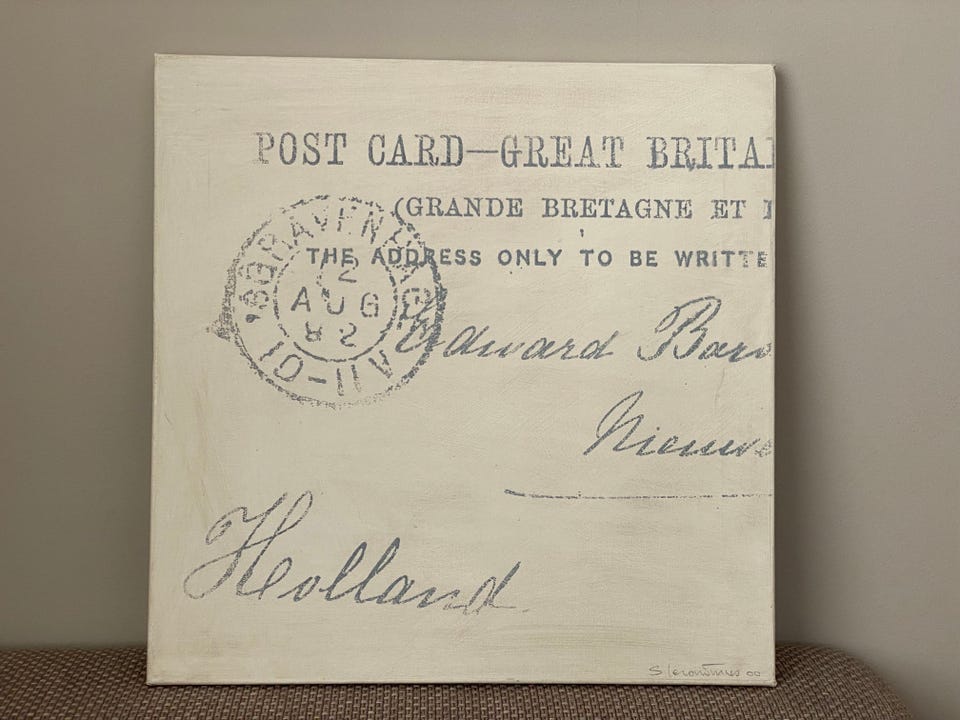 POST CARD—GREAT BRITAI
(GRANDE BRETAGNE ET I
THE ADDRESS ONLY TO BE WRITTE
'SGRAVENHAGE
2
AUG
82
10-11
Edward Bar
Nieuwe
Holland
00